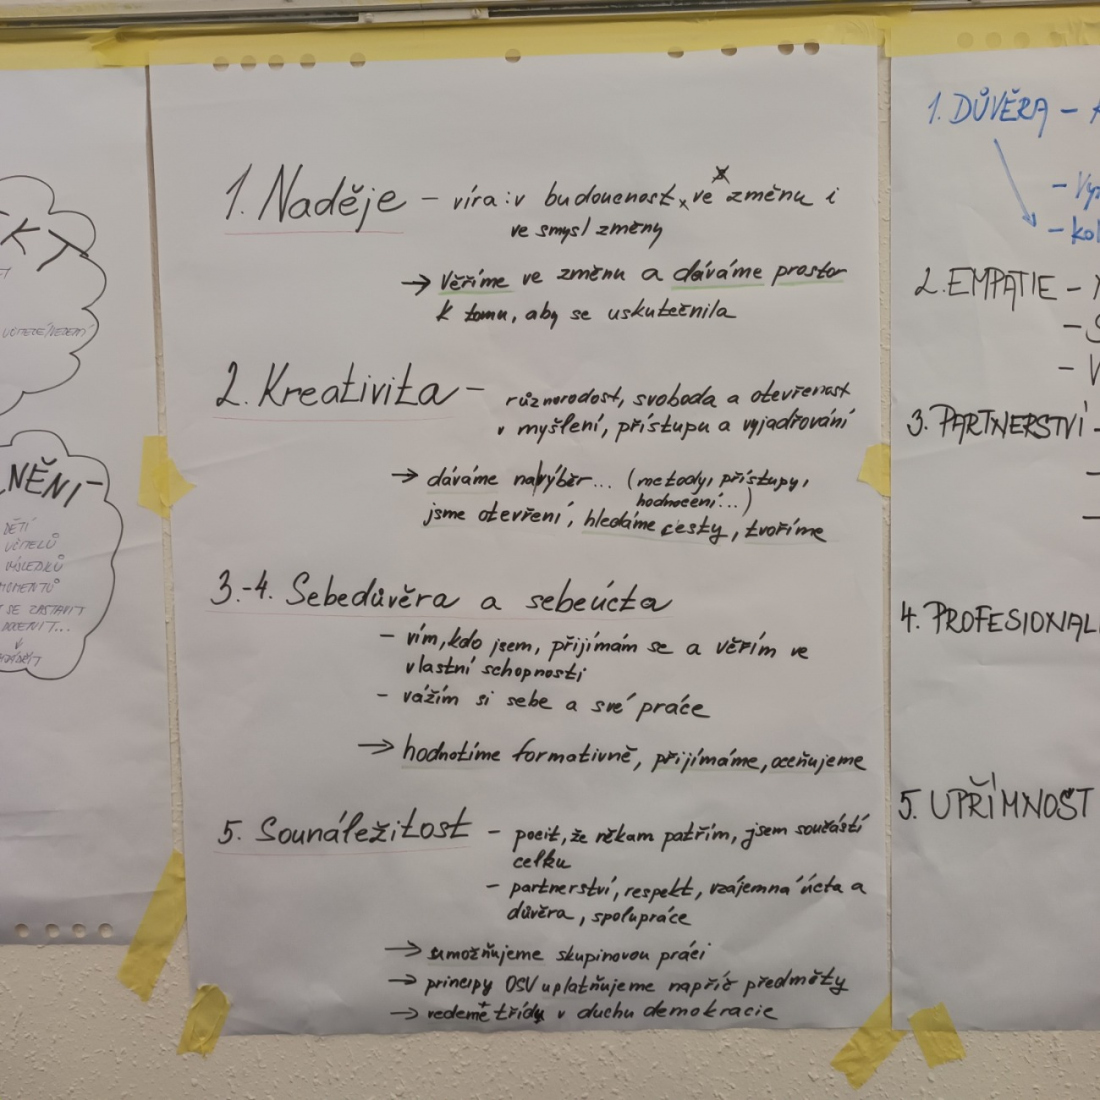 KT
UČITELÉ/VEDENÍ
LNĚNÍ
DĚTÍ
UČITELŮ
VÝSLEDKŮ
MOMENTŮ
SE ZASTAVIT
OCENIT...
V
1. Naděje – víra: v budoucnost, ve změnu i
ve smysl změny
→ Věříme ve změnu a dáváme prostor
k tomu, aby se uskutečnila
2. Kreativita – různorodost, svoboda a otevřenost
v myšlení, přístupu a vyjadřování
→ dáváme navýběr... (metody, přístupy,
hodnocení...)
jsme otevření, hledáme cesty, tvoříme
3.-4. Sebedůvěra a sebeúcta
– vím, kdo jsem, přijímám se a věřím ve
vlastní schopnosti
– vážím si sebe a své práce
→ hodnotíme formativně, přijímáme, oceňujeme
5. Sounáležitost – pocit, že někam patřím, jsem součástí
celku
– partnerství, respekt, vzájemná úcta a
důvěra, spolupráce
→ umožňujeme skupinovou práci
→ principy OSV uplatňujeme napříč předměty
→ vedeme třídy v duchu demokracie
1. DŮVĚRA –
2. EMPATIE –
3. PARTNERSTVÍ –
4. PROFESIONAL
5. UPŘÍMNOST